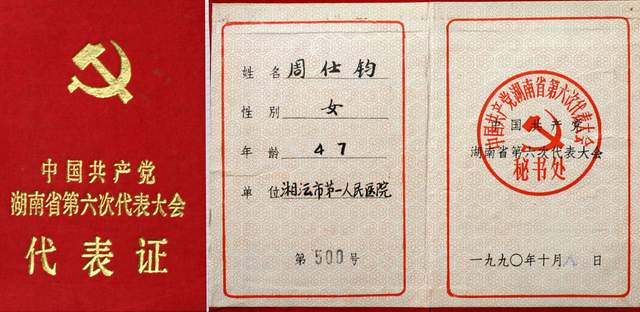 中国共产党
湖南省第六次代表大会
代表证
姓名 周仕钧
性别 女
年龄 47
单位 湘沄市第一人民医院
第500号
中国共产党湖南省第六次代表大会
秘书处
中国共产党
湖南省第六次代表大会
一九九〇年十月 日